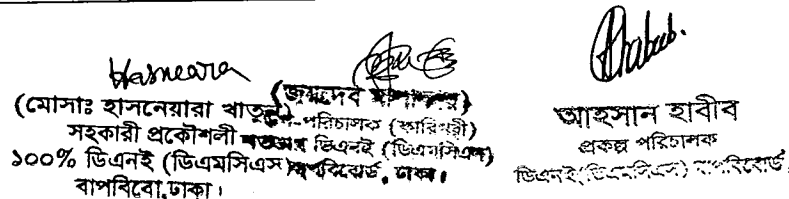 Hasneara
(মোসাঃ হাসনেয়ারা খাতুন)
সহকারী প্রকৌশলী
১০০% ডিএনই (ডিএমসিএস)
বাপবিবো,ঢাকা।
(জয়দেব
পরিচালক (কারিগরী)
ডিএনই (ডিএমসিএস)
বাপবিবোর্ড, ঢাকা।
Habib.
আহসান হাবীব
প্রকল্প পরিচালক
ডিএনই(ডিএনসিএস) বাপবিবোর্ড,